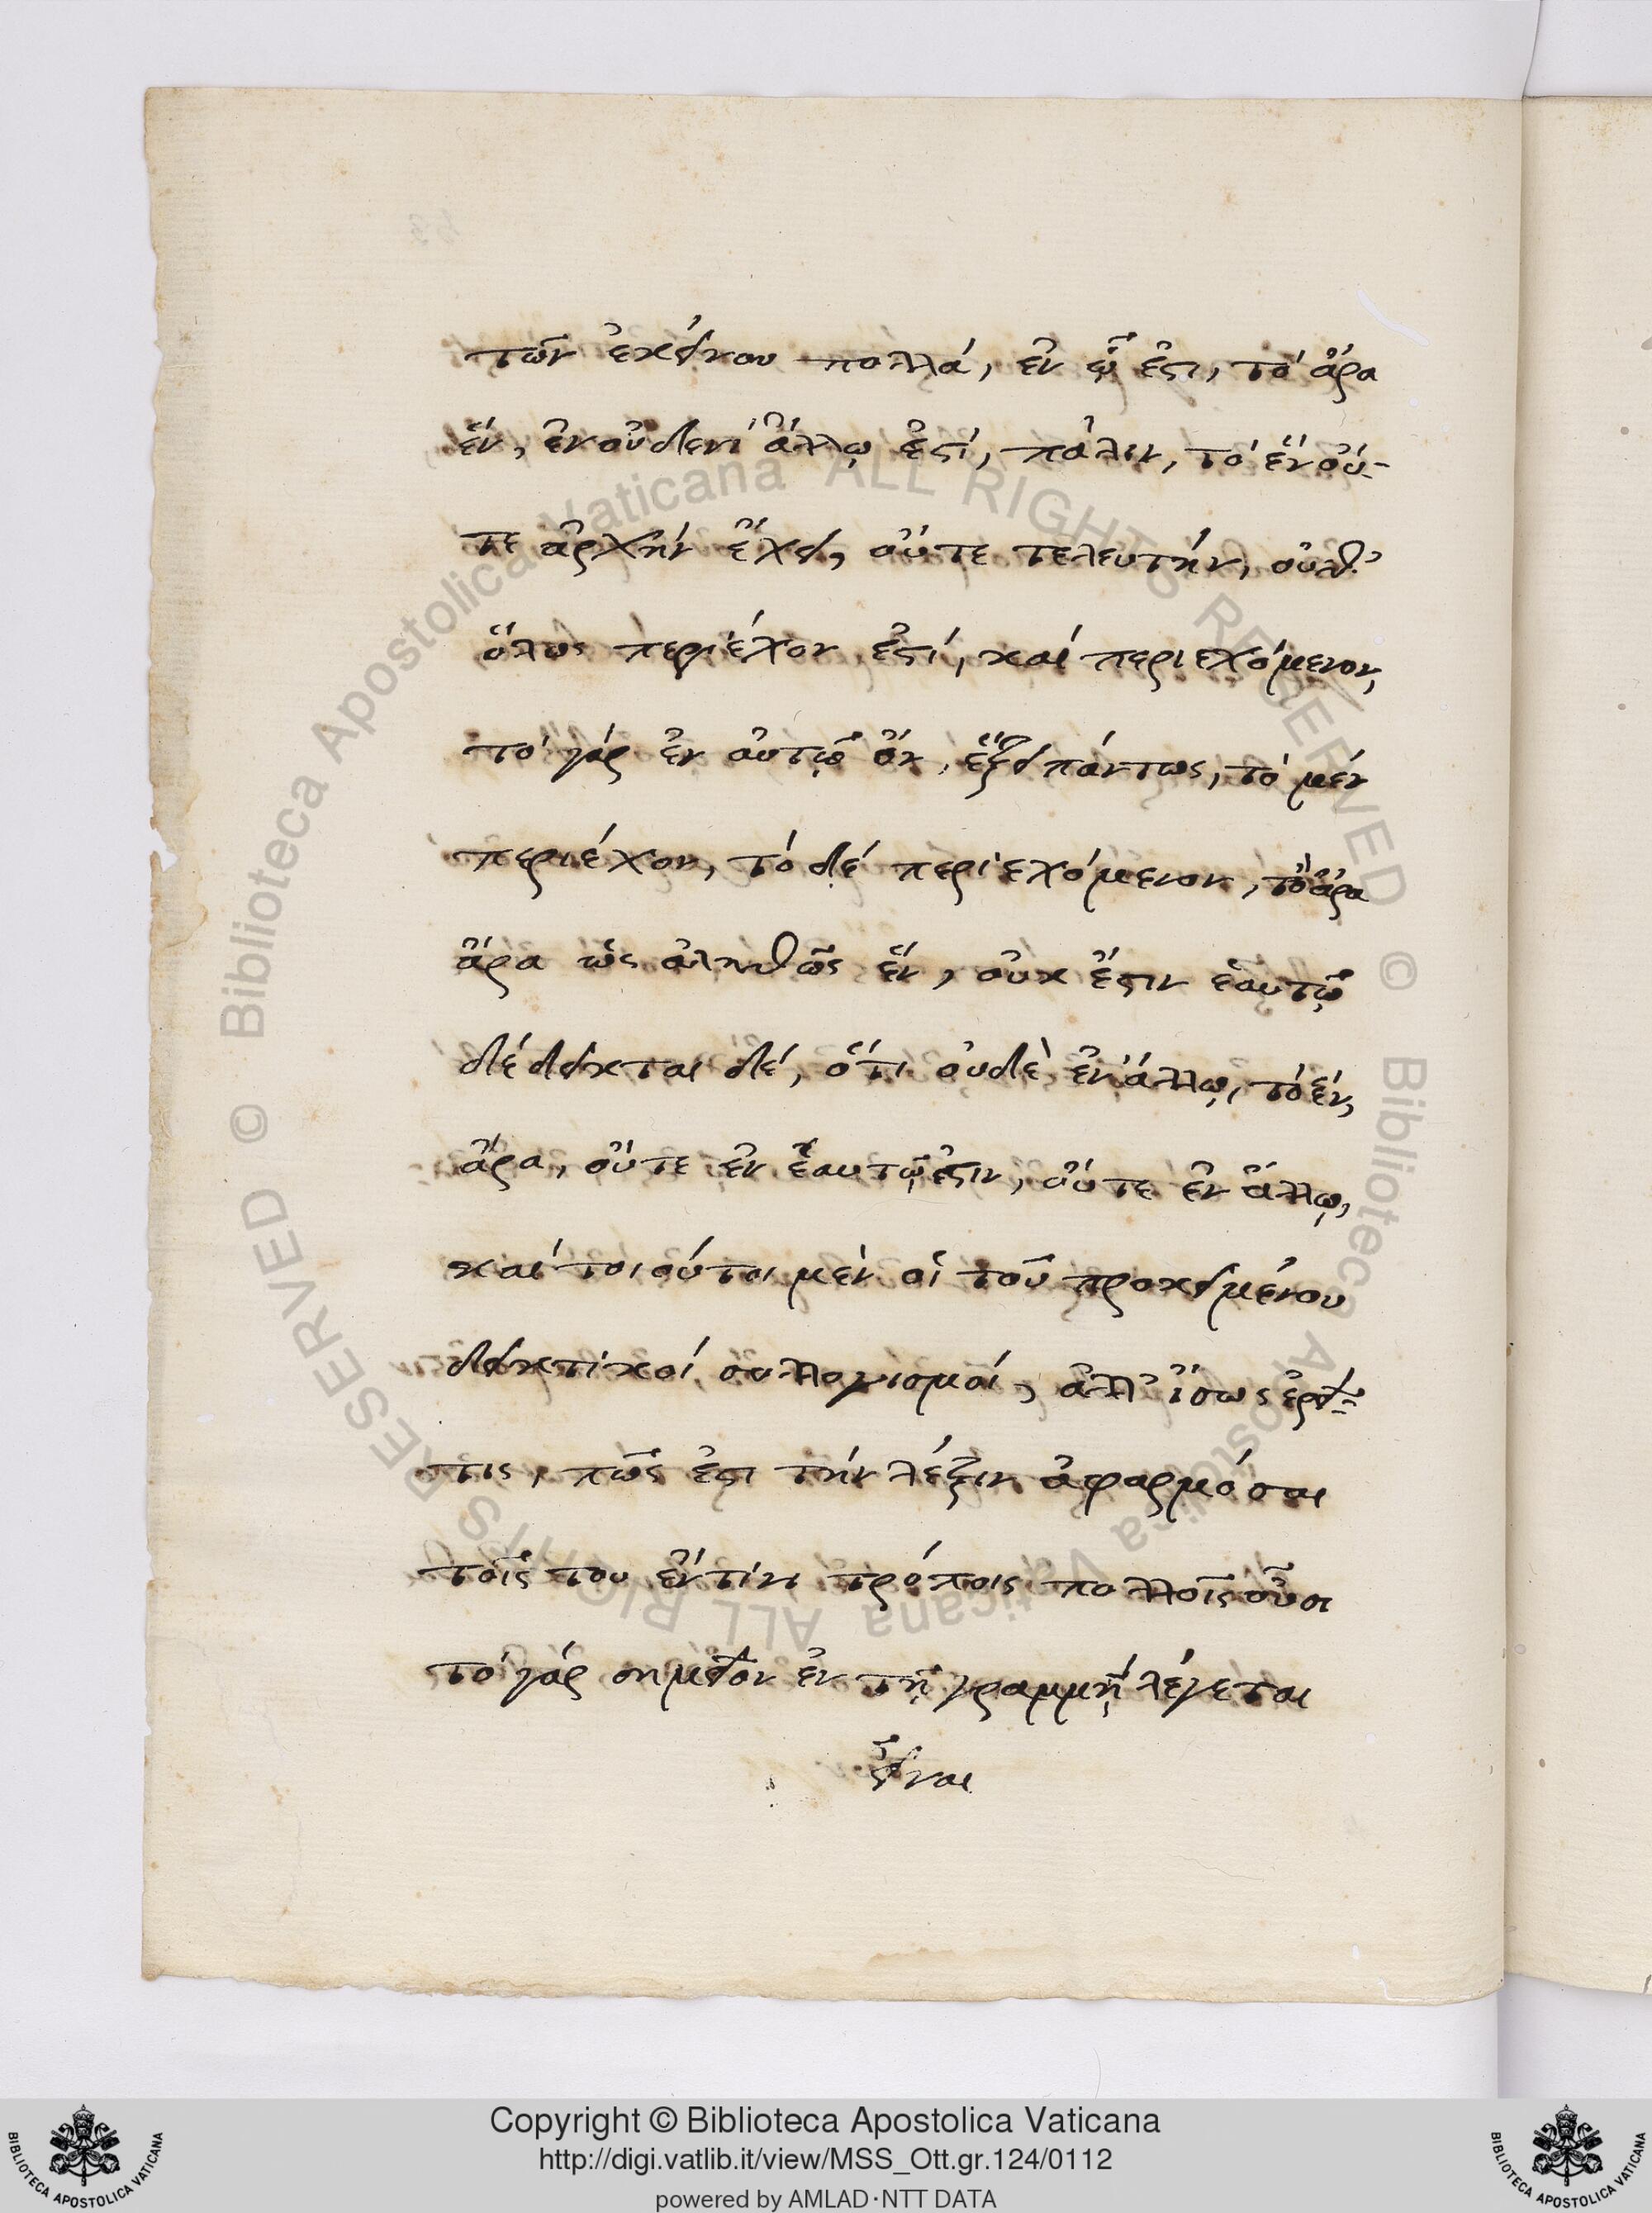 τῶν ἐκείνου πολλά, ἐν ᾧ ἐστι, τὸ ἄρα
ἕν, ἐν οὐδενὶ ἄλλῳ ἐστί, πάλιν, τὸ ἓν οὔ-
τε ἀρχὴν ἔχει, οὔτε τελευτήν, οὐδ'
ὅλως περιέχον ἐστί, καί περιεχόμενον,
τό γάρ ἐν αὑτῷ ὄν, ἕξει πάντως, τὸ μέν
περιέχον, τό δέ περιεχόμενον, τὸ ἄρα
ἄρα ὡς ἀληθῶς ἕν, οὐκ ἔστιν ἑαυτῷ
δέδεικται δέ, ὅτι οὐδὲ ἐν ἄλλῳ, τό ἕν,
ἄρα, οὔτε ἐν ἑαυτῷ ἐστιν, οὔτε ἐν ἄλλῳ,
καί τοιοῦτοι μὲν οἱ τοῦ προκειμένου
δεικτικοί συλλογισμοί, ἀλλ' ἴσως ἐρεῖ
τις, πῶς ἐστι τήν λέξιν ἐφαρμόσαι
τοῖς του ἔν τινι τρόποις πολλοῖς οὖσι
τό γάρ σημεῖον ἐν τῇ γραμμῇ λέγεται
εἶναι
Copyright © Biblioteca Apostolica Vaticana
http://digi.vatlib.it/view/MSS_Ott.gr.124/0112
powered by AMLAD·NTT DATA
© Biblioteca Apostolica Vaticana ALL RIGHTS RESERVED
© Biblioteca Apostolica Vaticana ALL RIGHTS RESERVED
BIBLIOTECA APOSTOLICA VATICANA
BIBLIOTECA APOSTOLICA VATICANA